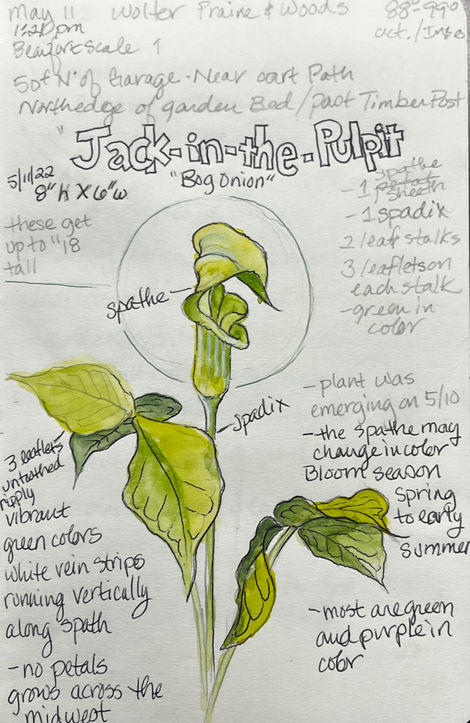 May 11 Wolter Praire & Woods 88°-99°
1:20pm
Beaufort Scale 1
50ft N. of Garage - Near cart Path
Northedge of garden Bed / past Timber Post
"Jack-in-the-Pulpit
"Bog Onion"
5/11/22
8"h x 6"w
these get
up to "18
tall
spathe
- 1
sheath
- 1 spadix
2 leaf stalks
3 leaflets on
each stalk
- green in
color
spathe
spadix
3 leaflets
untoothed
vibrant
green colors
white vein strips
running vertically
along spath
- no petals
grows across the
midwest
- plant was
emerging on 5/10
- the spathe may
change in color
Bloom season
Spring
to early
summer
- most are green
and purple in
color